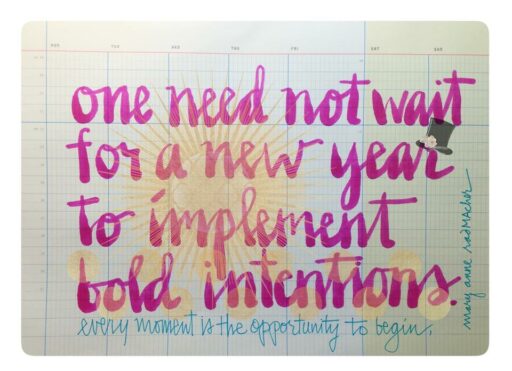 MON TUE WED THU FRI SAT SUN
one need not wait
for a new year
to implement
bold intentions.
every moment is the opportunity to begin.
mary anne radmacher